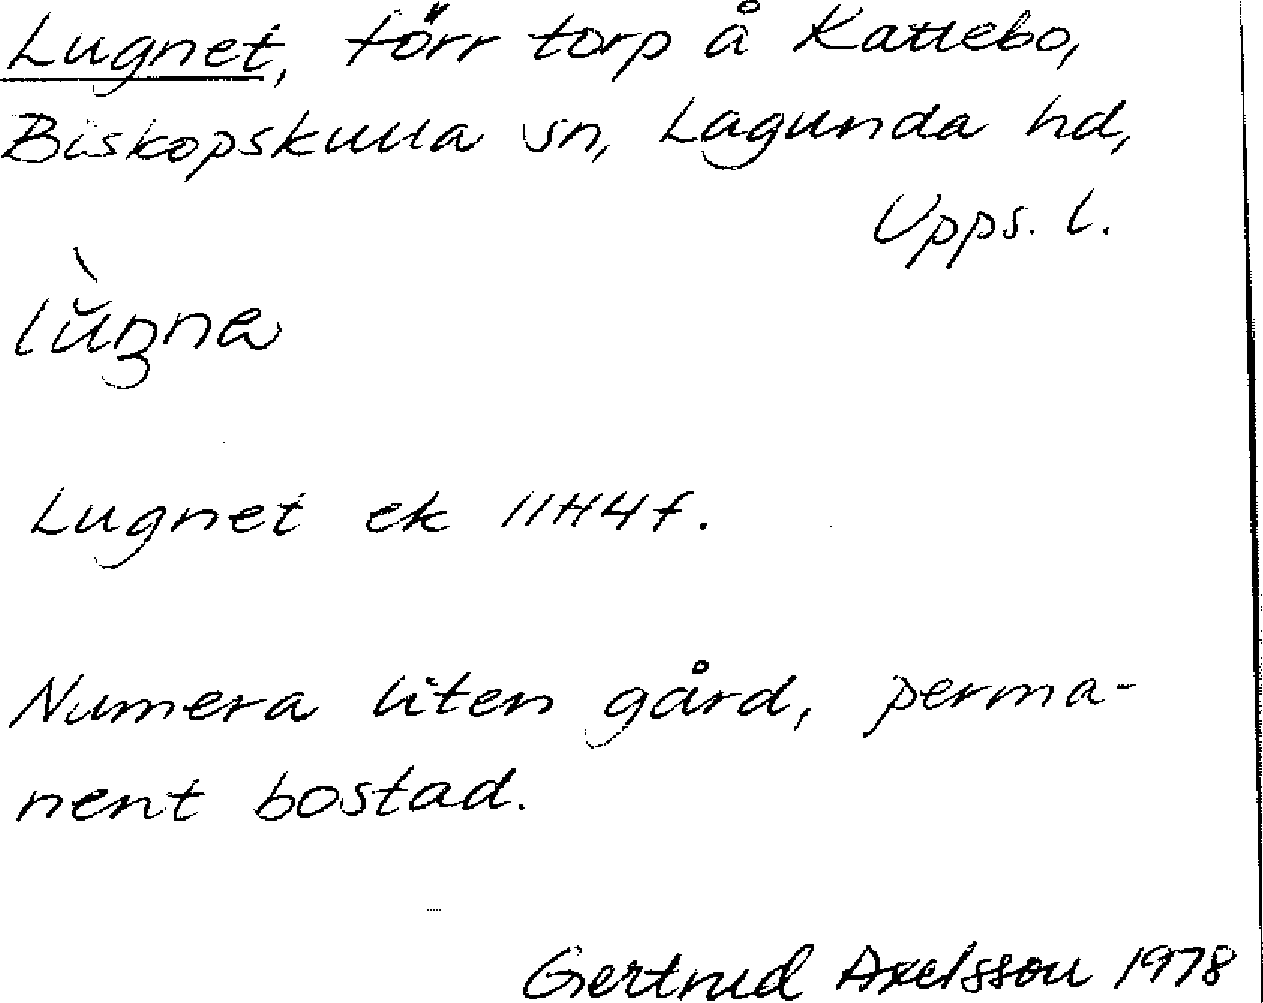 Lugnet, förr torp å Kattebo,
Biskopskulla sn, Lagunda hd,
Upps. l.
Lugnet ek 11H4f.
Numera liten gård, perma-
nent bostad.
Gertrud Axelsson 1978